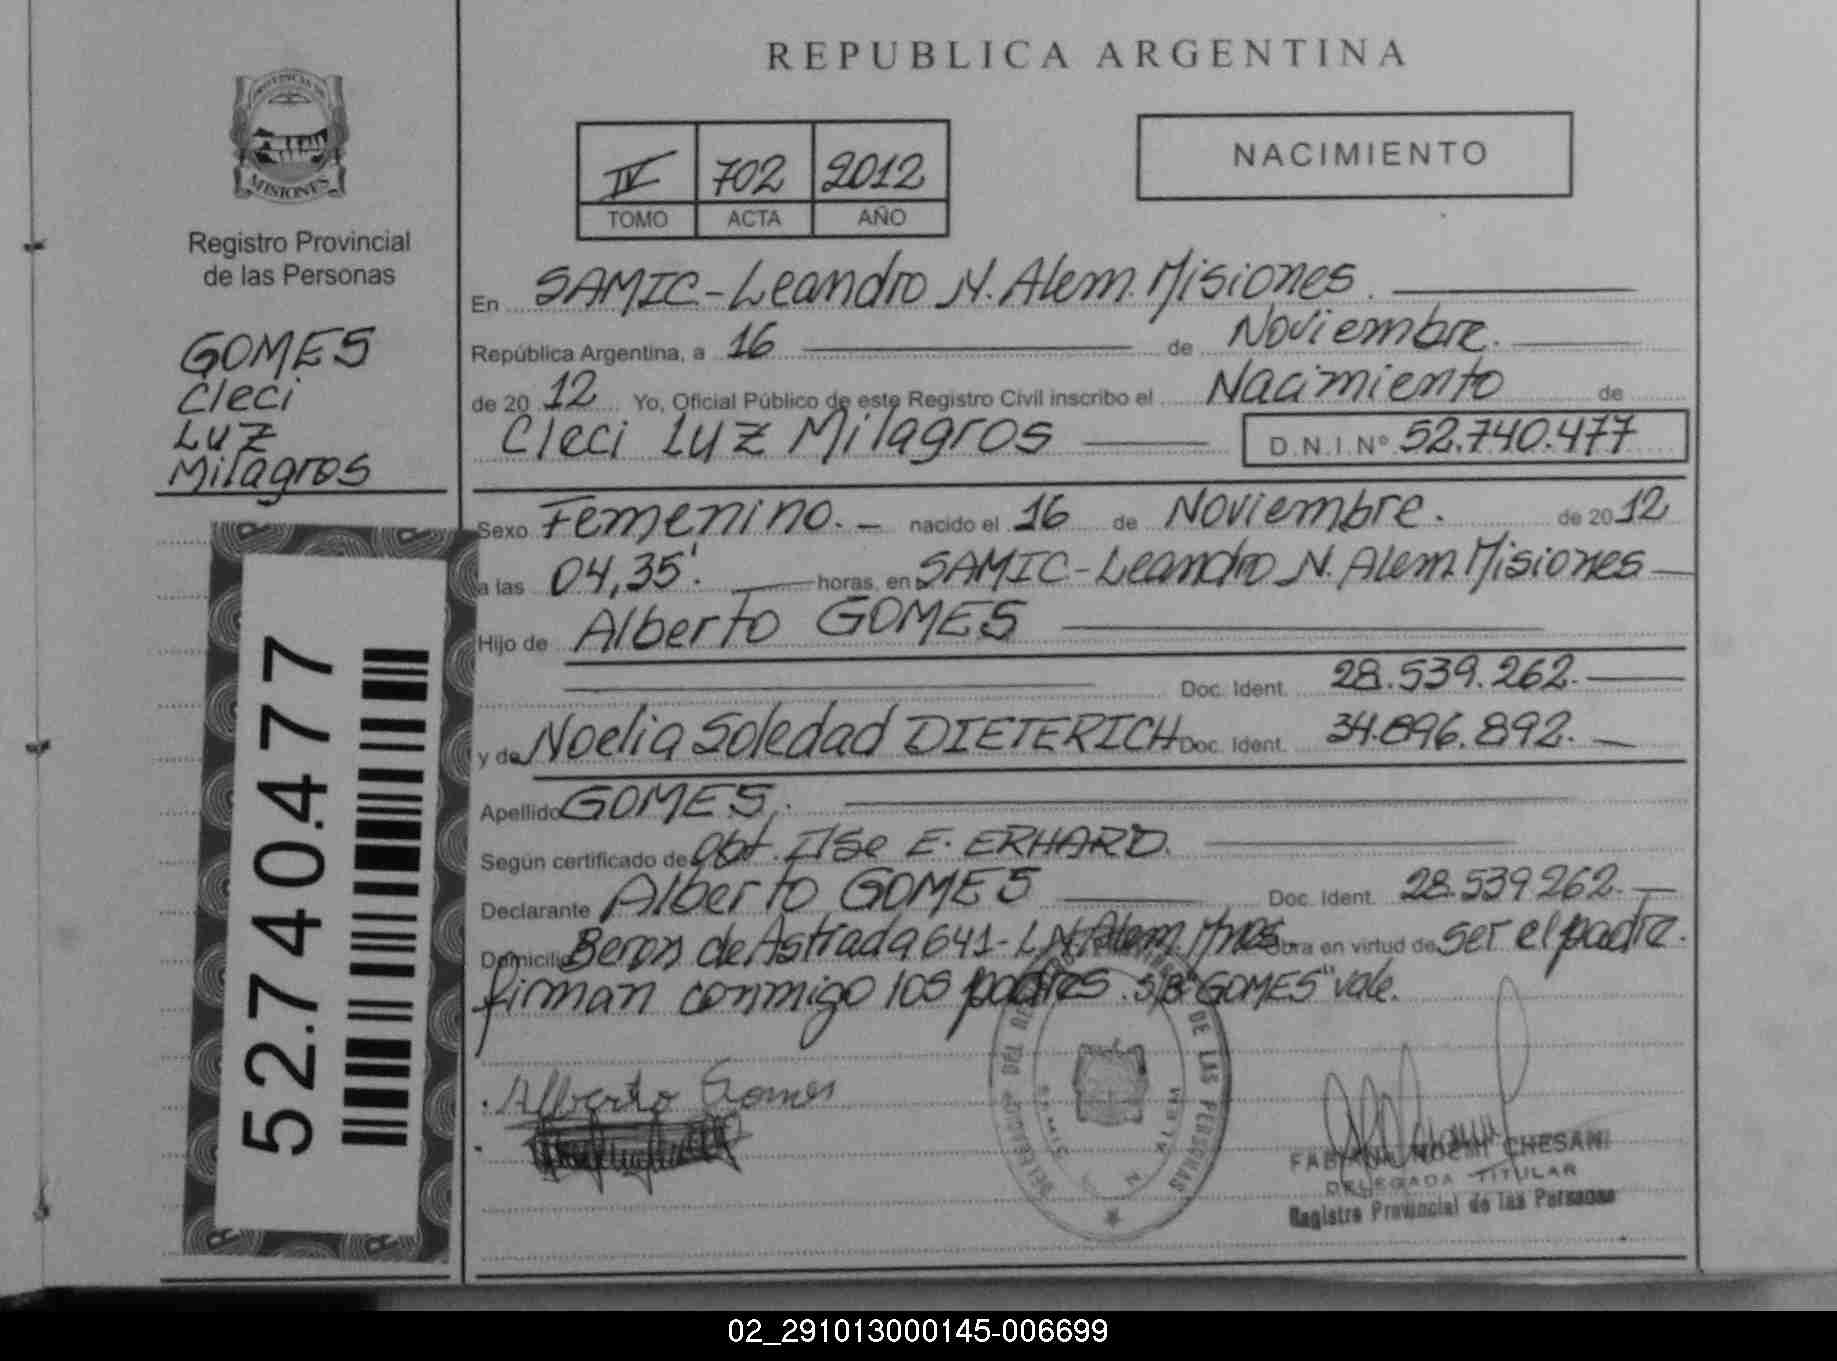 REPUBLICA ARGENTINA
NACIMIENTO
IV 702 2012
TOMO ACTA AÑO
MISIONES
Registro Provincial
de las Personas
GOMES
Cleci
Luz
Milagros
52.740.477
En SAMIC-Leandro N. Alem. Misiones.
República Argentina, a 16 de Noviembre.
de 20 12 Yo, Oficial Público de este Registro Civil inscribo el Nacimiento de
Cleci Luz Milagros D.N.I.Nº 52.740.477
Sexo Femenino.- nacido el 16 de Noviembre. de 20 12
a las 04,35'. horas, en SAMIC-Leandro N. Alem Misiones
Hijo de Alberto GOMES
Doc. Ident. 28.539.262.
y de Noelia Soledad DIETERICH Doc. Ident. 34.896.892.
Apellido GOMES.
Según certificado de Obt. Ilse E. ERHARD.
Declarante Alberto GOMES Doc. Ident. 28.539262.
Domicilio Beron de Astrada 641- L.N.Alem. Mnes. Obra en virtud de ser el padre.
firman conmigo los padres. S/B "GOMES" vale.
Alberto Gomes
DE LAS PERSONAS
FABIANA NOEMI CHESANI
DELEGADA TITULAR
Registro Provincial de las Personas
02_291013000145-006699